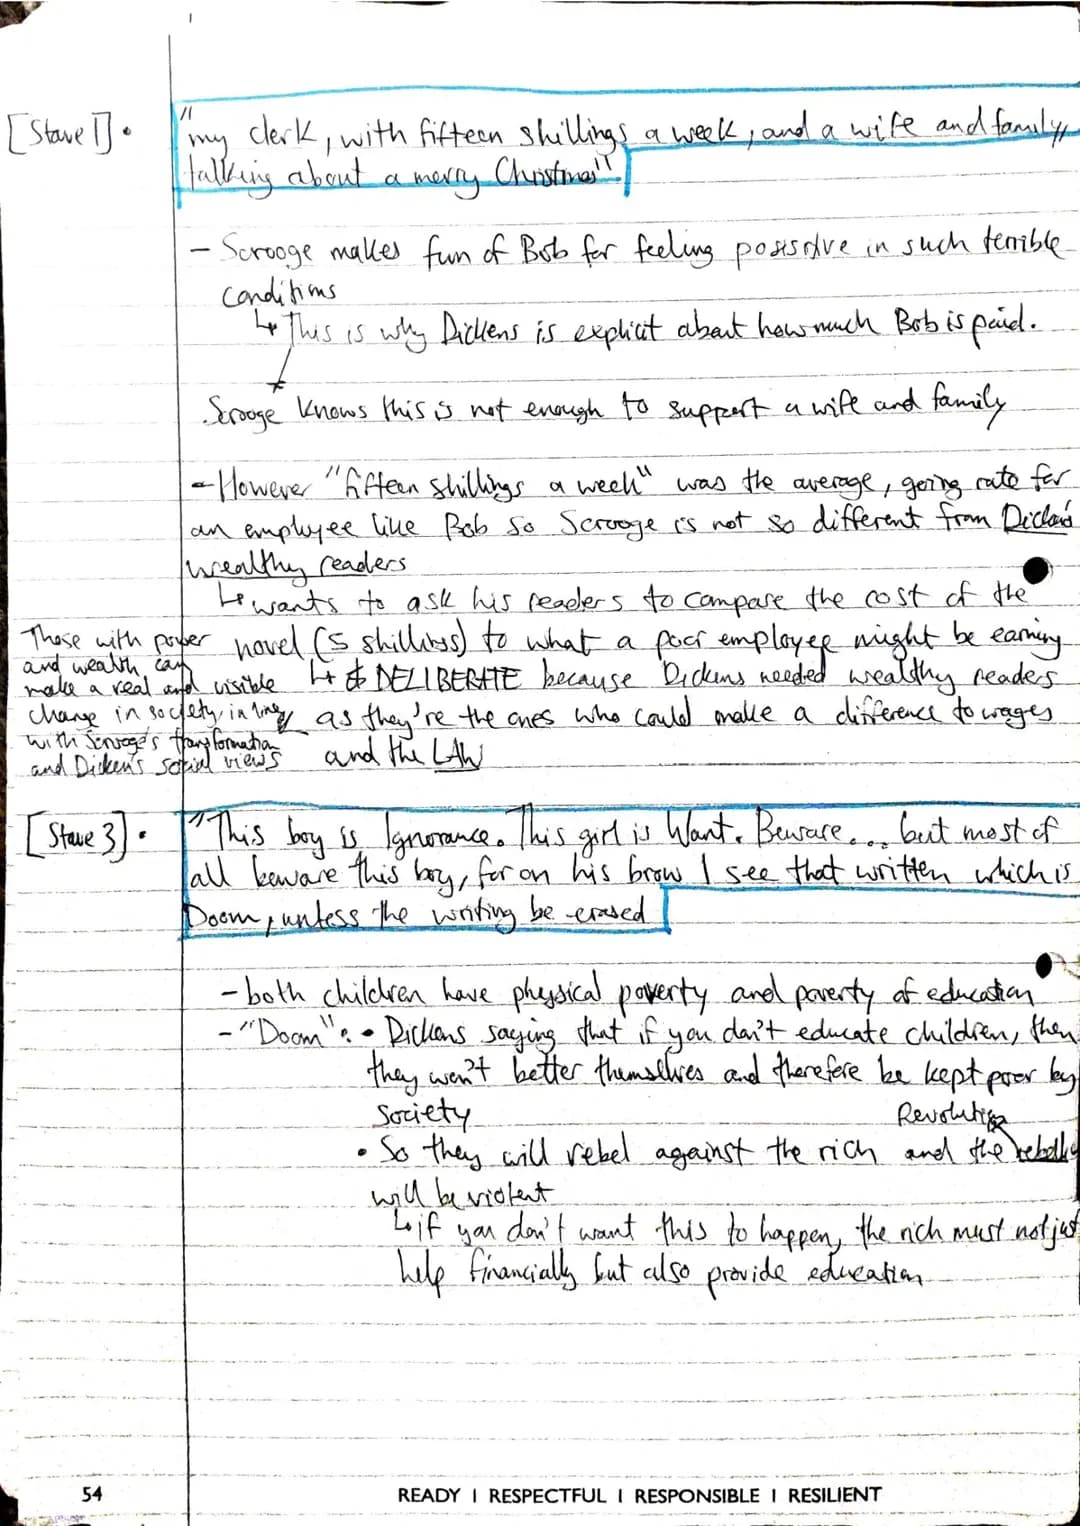 [Stave 1] • "my clerk, with fifteen shillings a week, and a wife and family,
talking about a merry Christmas"
- Scrooge makes fun of Bob for feeling posistive in such terrible
conditions
↳ This is why Dickens is explicit about how much Bob is paid.
Scrooge knows this is not enough to support a wife and family
- However "fifteen shillings a week" was the average, going rate for
an employee like Bob so Scrooge is not so different from Dickens
wealthy readers
↳ wants to ask his readers to compare the cost of the
novel (5 shillings) to what a poor employee might be earning
↳ DELIBERATE because Dickens needed wealthy readers
as they're the ones who could make a difference to wages
and the LAW
Those with power
and wealth can
make a real and visible
change in society, in line
with Scrooge's transformation
and Dicken's social views
[Stave 3] • "This boy is Ignorance. This girl is Want. Beware... but most of
all beware this boy, for on his brow I see that written which is
Doom, unless the writing be erased
- both children have physical poverty and poverty of education
- "Doom": • Dickens saying that if you don't educate children, then
they won't better themselves and therefore be kept poor by
society
Revolution
• So they will rebel against the rich and the
will be violent
↳ if you don't want this to happen, the rich must not just
help financially but also provide education
54
READY | RESPECTFUL | RESPONSIBLE | RESILIENT